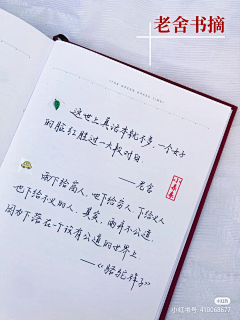 老舍书摘
这世上真话本就不多,一个女子
的脸红胜过一大段对白
——老舍
雨下给富人,也下给穷人,下给义人
也下给不义的人,其实,雨并不公道,
因为下落在一个没有公道的世界上
——《骆驼祥子》
小红书
小红书号:410068677